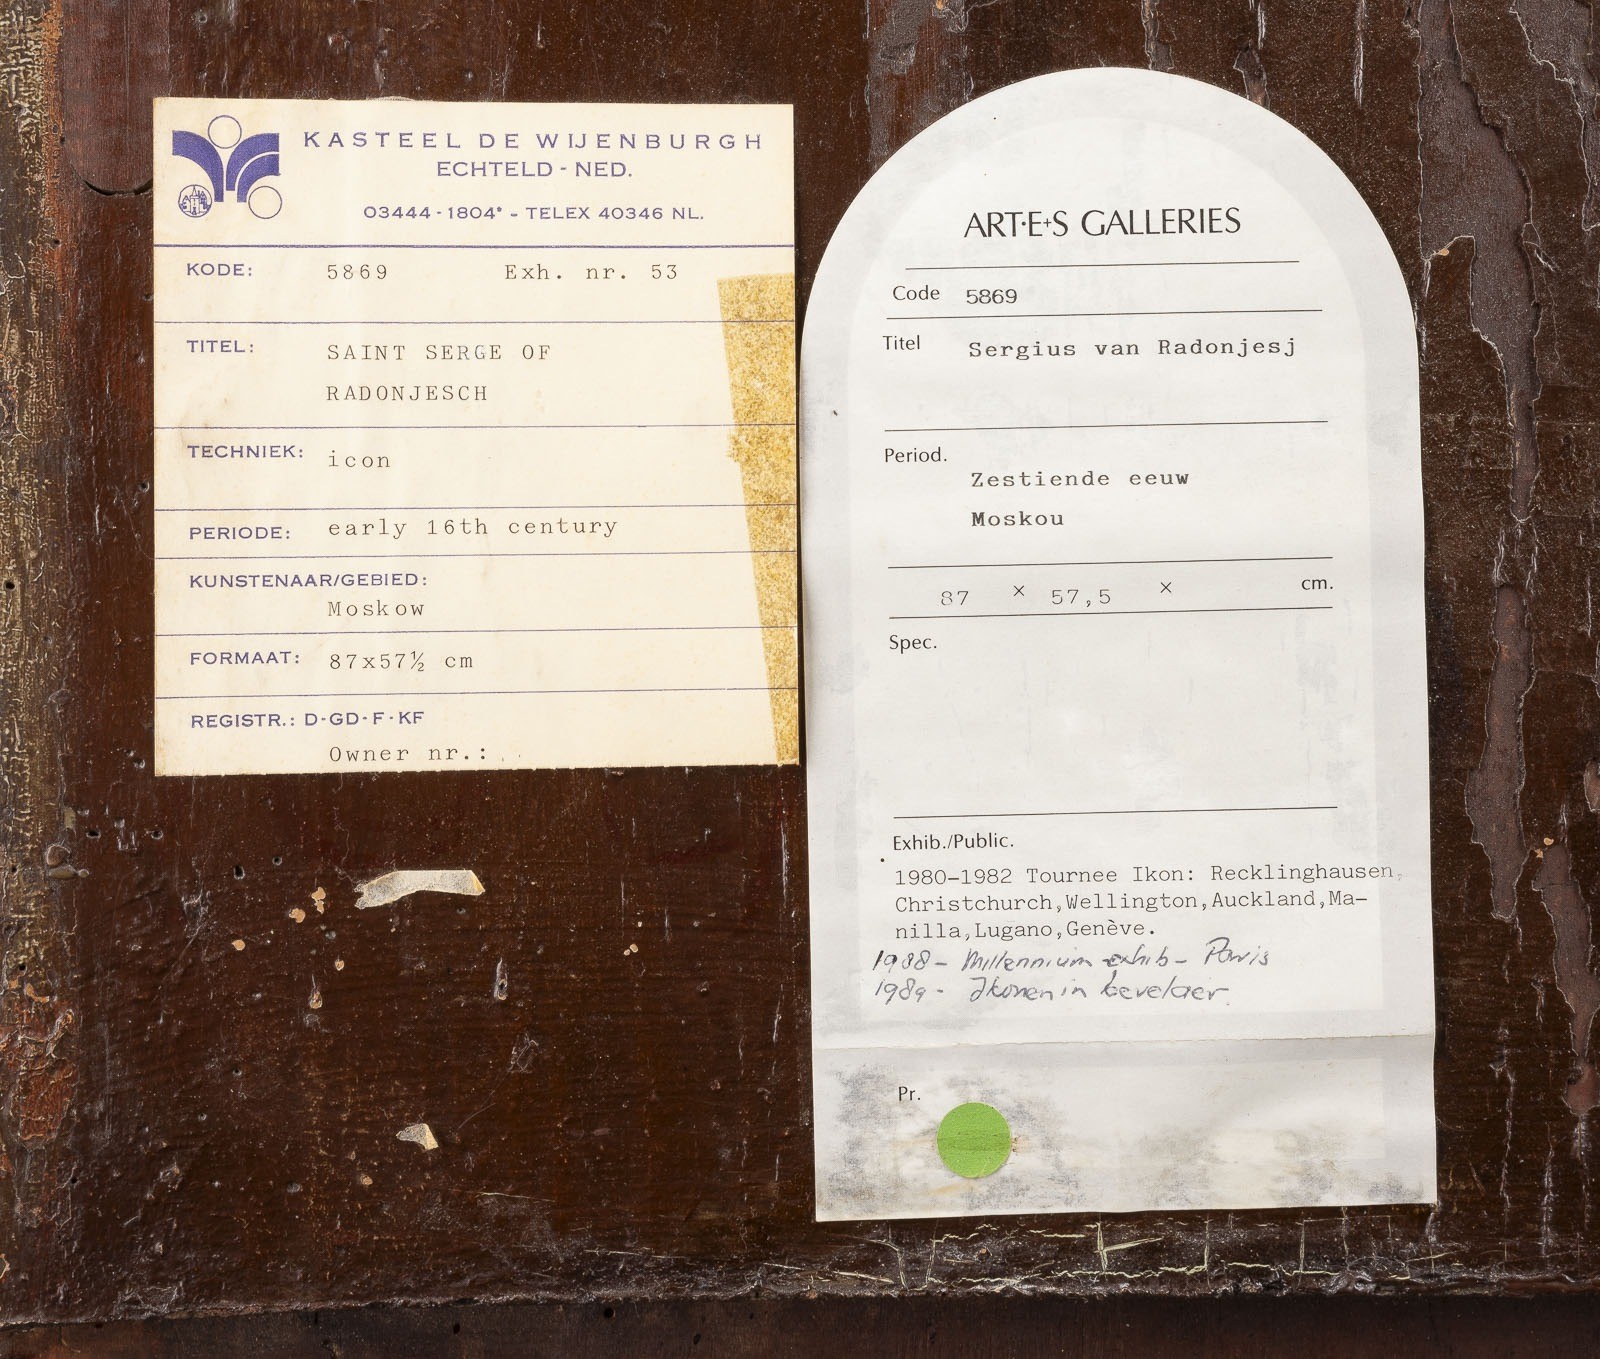 KASTEEL DE WIJENBURGH
ECHTELD - NED.
03444 - 1804* - TELEX 40346 NL.
KODE: 5869 Exh. nr. 53
TITEL: SAINT SERGE OF
RADONJESCH
TECHNIEK: icon
PERIODE: early 16th century
KUNSTENAAR/GEBIED:
Moskow
FORMAAT: 87x57½ cm
REGISTR.: D-GD-F-KF
Owner nr.:
ART·E+S GALLERIES
Code 5869
Titel Sergius van Radonjesj
Period.
Zestiende eeuw
Moskou
87 × 57,5 × cm.
Spec.
Exhib./Public.
1980-1982 Tournee Ikon: Recklinghausen,
Christchurch,Wellington,Auckland,Ma-
nilla,Lugano,Genève.
1988 - Millennium exhib - Paris
1989 - Ikonen in kevelaer
Pr.